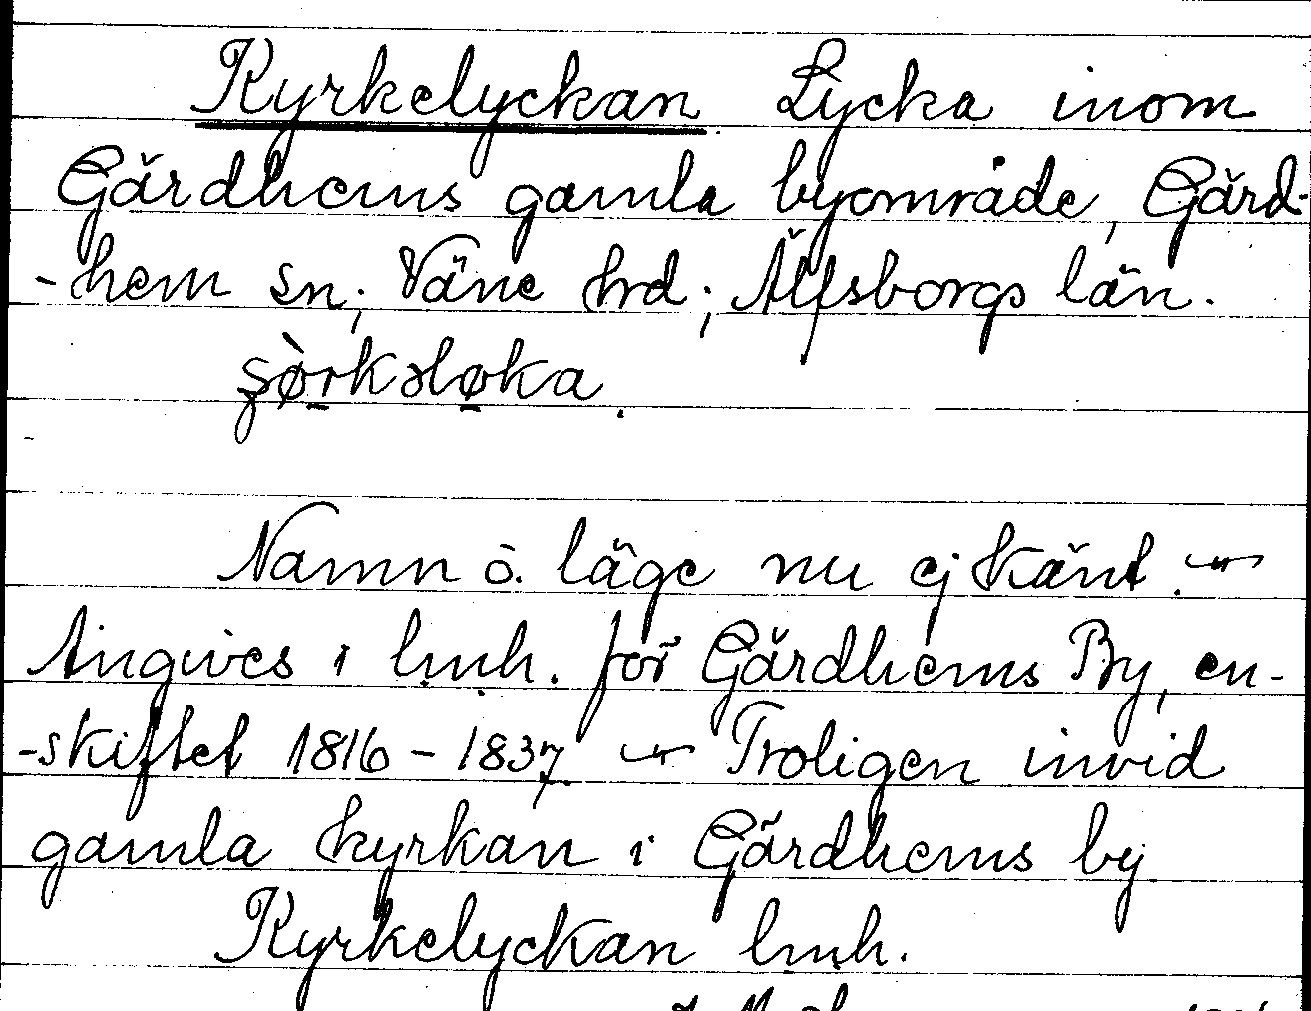 Kyrkelyckan. Lycka inom
Gärdhems gamla byområde, Gärd-
-hem sn, Väne hrd; Älfsborgs län.
Namn o. läge nu ej känt. —
Angives i lmh. för Gärdhems By, en-
-skiftet 1816-1837. — Troligen invid
gamla kyrkan i Gärdhems by
Kyrkelyckan lmh.